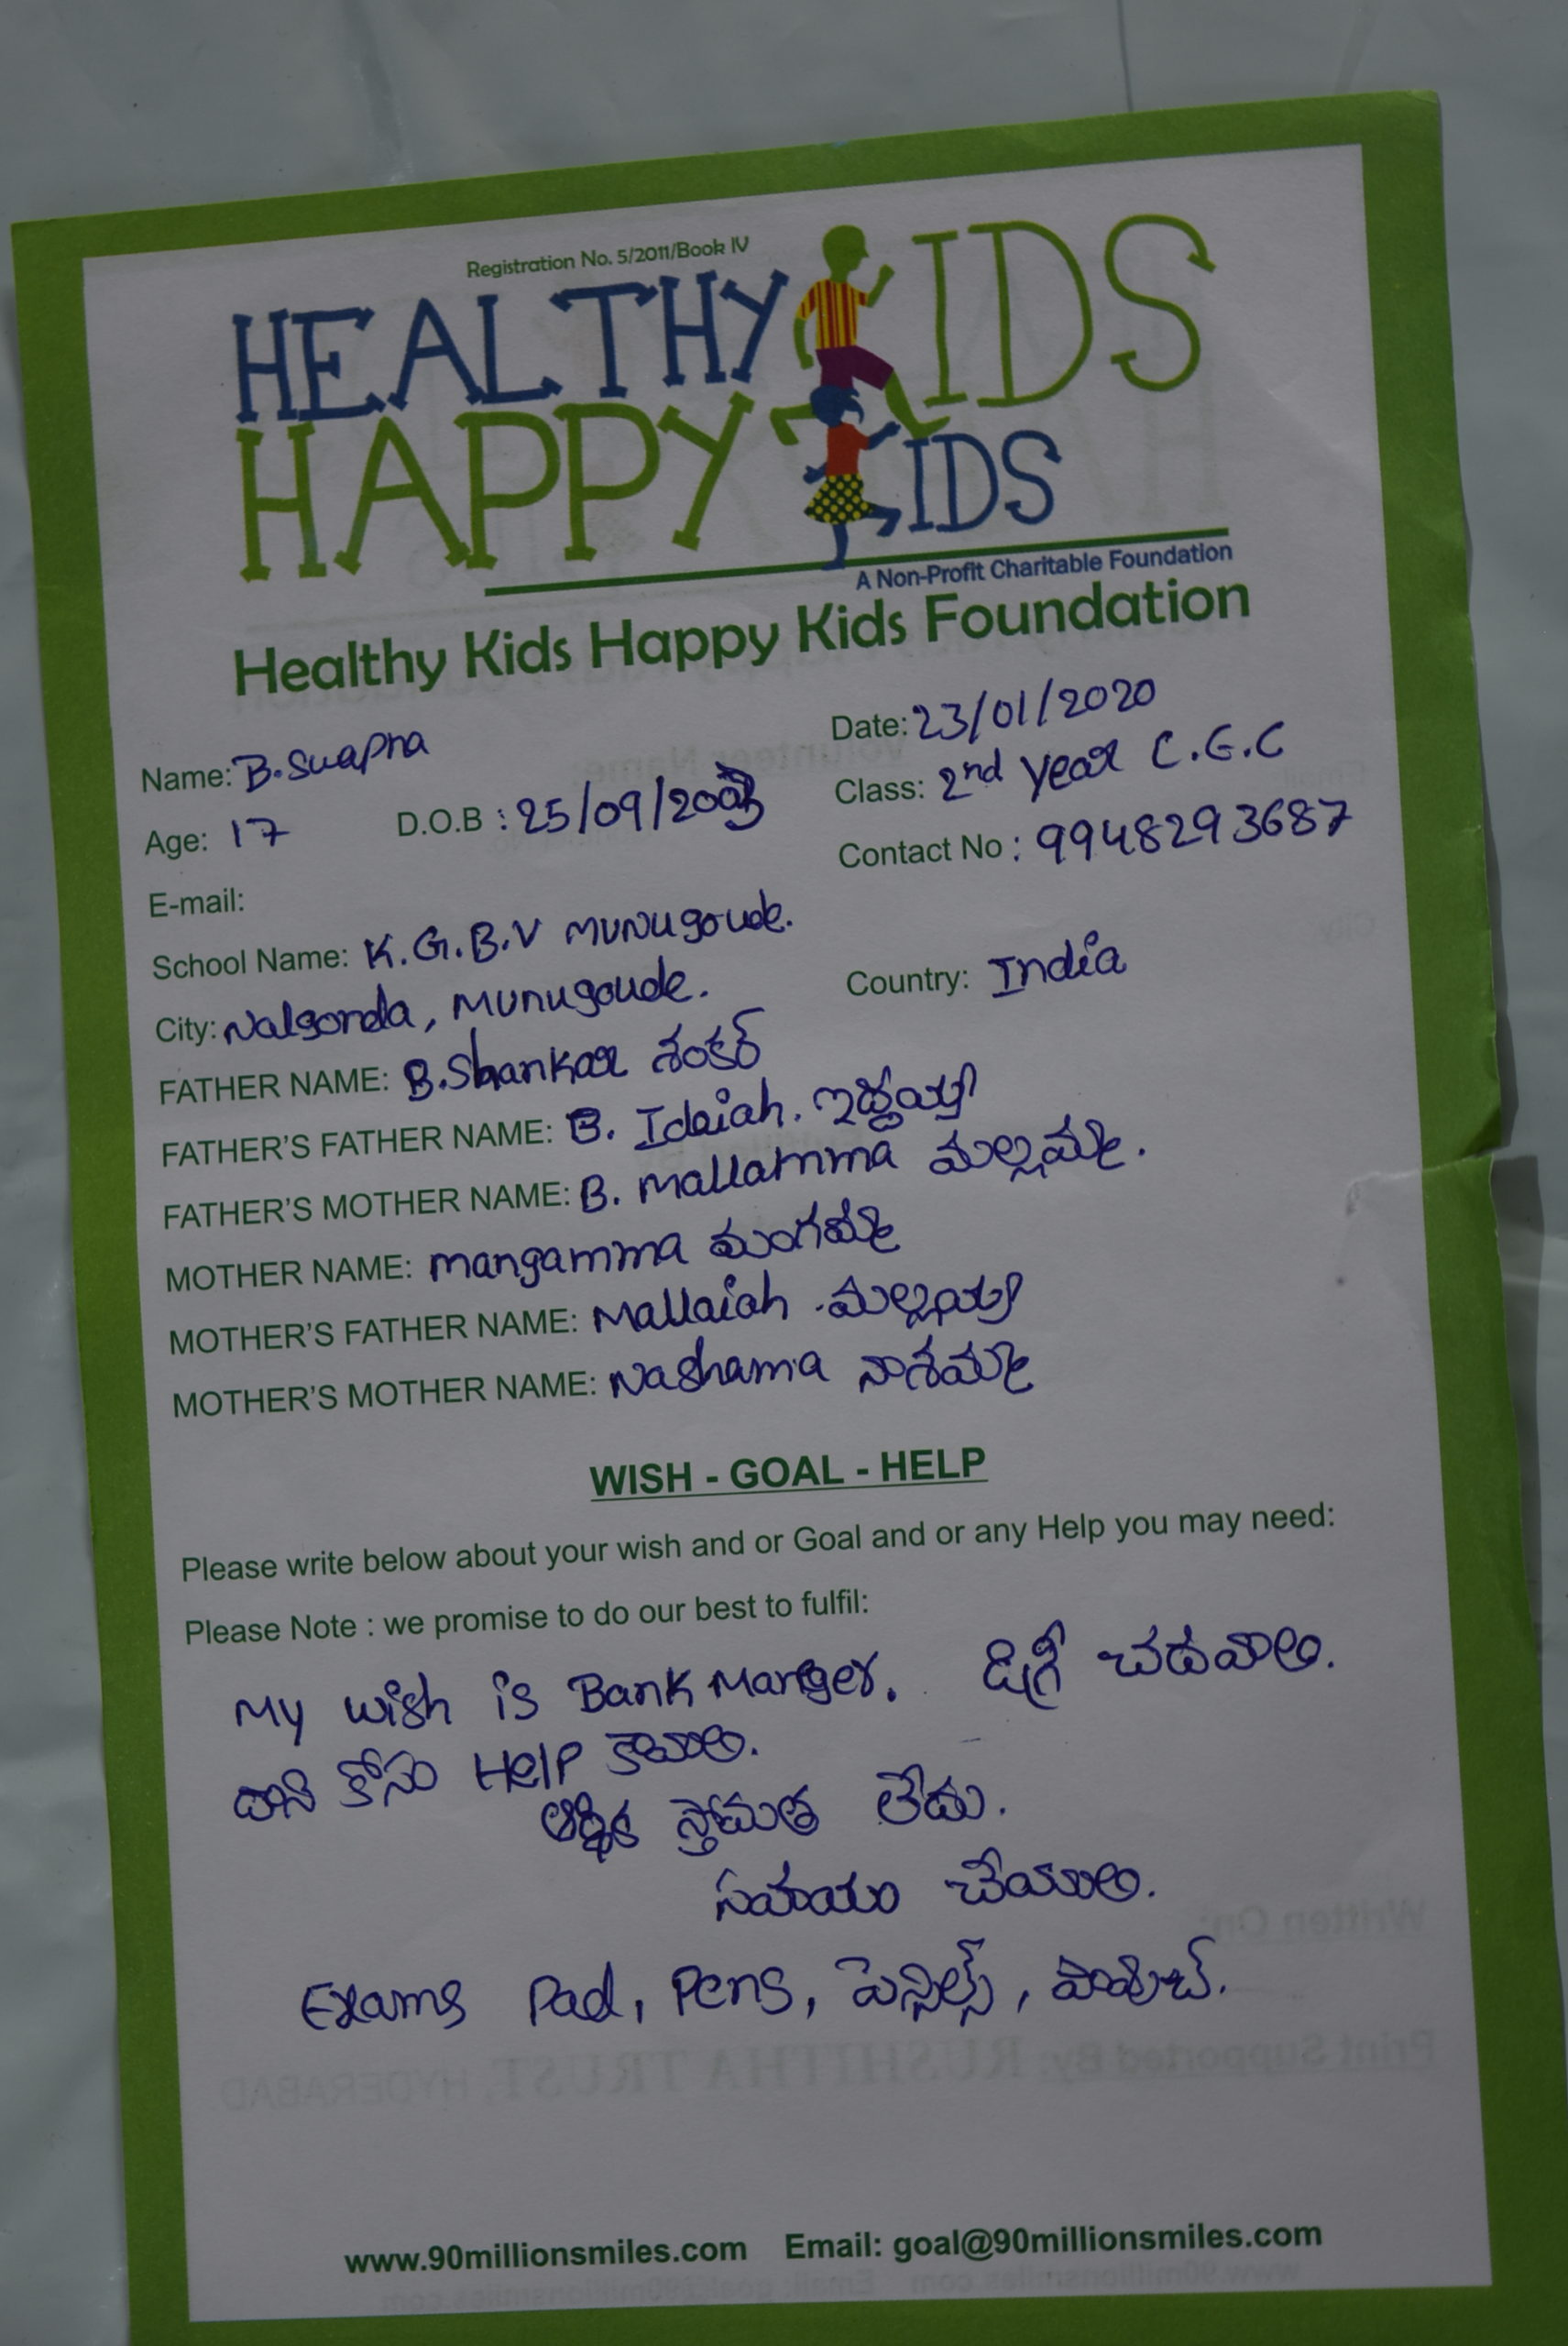 Registration No. 5/2011/Book IV
HEALTHY KIDS
HAPPY KIDS
A Non-Profit Charitable Foundation
Healthy Kids Happy Kids Foundation
Name: B.Swapna
Date: 23/01/2020
Age: 17 D.O.B : 25/09/2003
Class: 2nd year C.G.C
E-mail:
Contact No : 9948293687
School Name: K.G.B.V Munugoude.
City: Nalgonda, Munugoude. Country: India
FATHER NAME: B.Shankar శంకర్
FATHER'S FATHER NAME: B. Idaiah. ఇద్దయ్య
FATHER'S MOTHER NAME: B. Mallamma మల్లమ్మ.
MOTHER NAME: mangamma మంగమ్మ
MOTHER'S FATHER NAME: Mallaiah మల్లయ్య
MOTHER'S MOTHER NAME: Nashama నాశమ్మ
WISH - GOAL - HELP
Please write below about your wish and or Goal and or any Help you may need:
Please Note : we promise to do our best to fulfil:
My wish is Bank Manger. డిగ్రీ చదవాలి.
దాని కోసం Help కావాలి.
ఆర్థిక స్తోమత లేదు.
సహయం చేయాలి.
Exams Pad, Pens, పెన్సిల్స్, పావుచ్.
www.90millionsmiles.com Email: goal@90millionsmiles.com